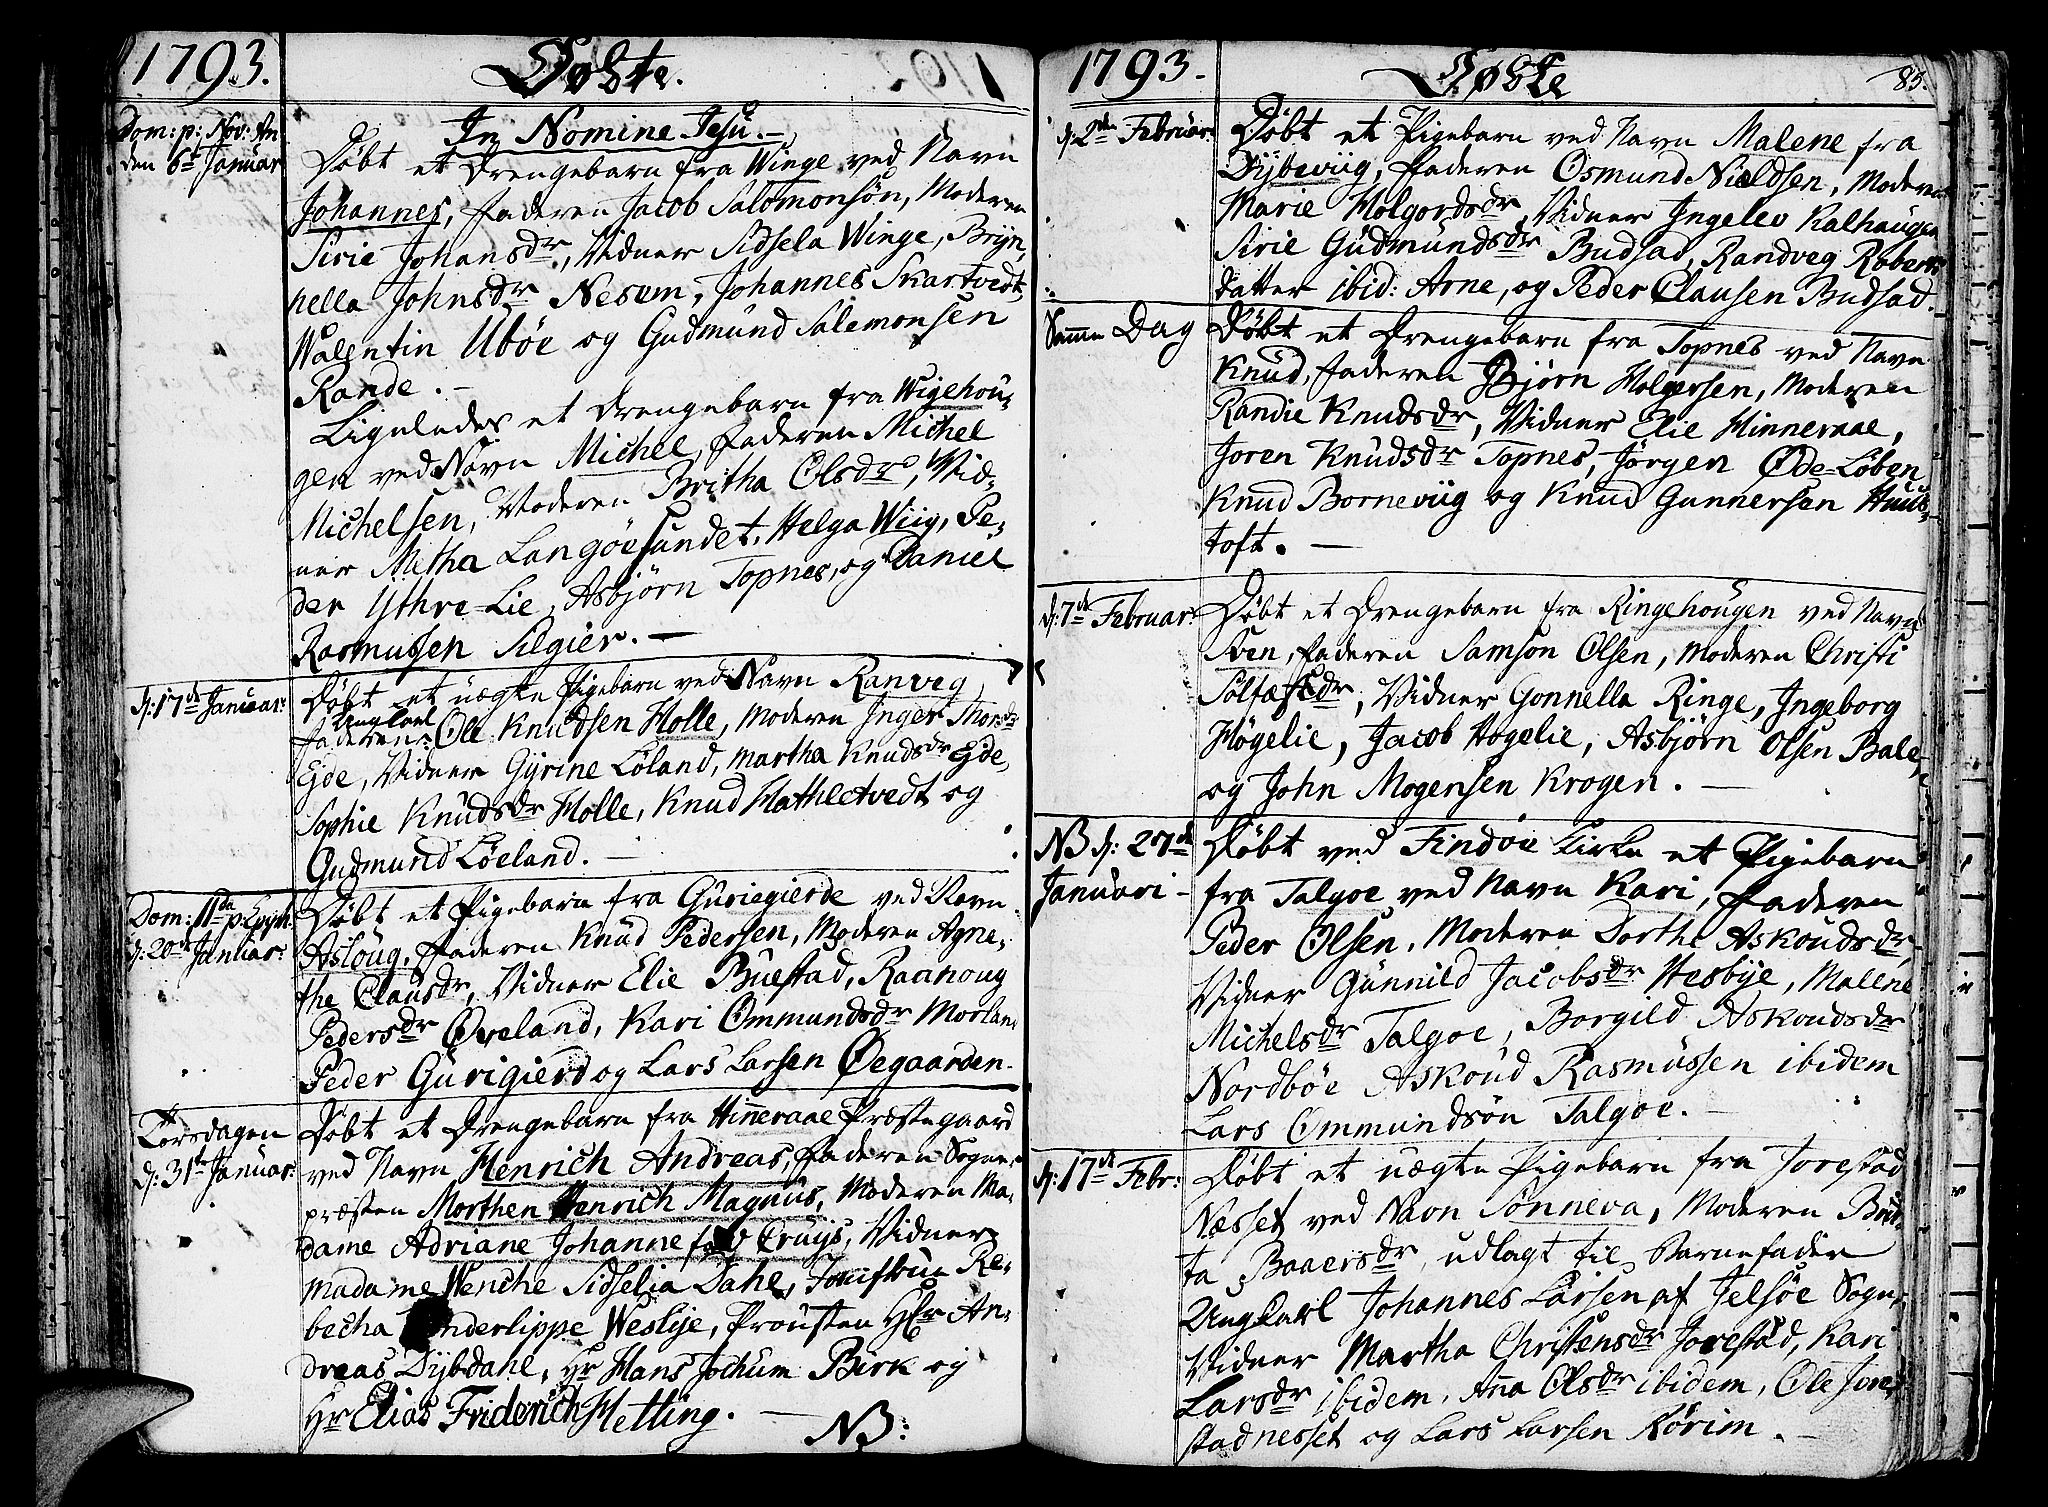 1793.
Døbte.
Dom: p: Nov: An
den 6t Januar
In Nomine Jesu.-
Døbt et Drengebarn fra Winge ved Navn
Johannes, Faderen Jacob Salomonsøn, Moderen
Sirie Johansdr, Vidner Sidsela Winge, Bryn,
hella Johnsdr Nesem, Johannes Skartvedt,
Walentin Ubøe og Gudmund Salemonsen
Rande.-
Ligeledes et Drengebarn fra Wigehou-
gen ved Navn Michel, Faderen Michel
Michelsen, Moderen Britha Olsdr, Vid-
ner Metha Langøesundet, Helga Wiig, Pe-
der Ythre-Lie, Asbjørn Topnes, og Daniel
Rasmussen Silgier.-
d: 17de Januar:
Døbt et uægte Pigebarn ved Navn Ranveg,
Ungkarl
Faderen: Ole Knudsen Holle, Moderen Inger Thorsdr
Eide, Vidner Gyrine Løland, Martha Knudsdr Eide,
Sophie Knudsdr Holle, Knud Hathletvedt og
Gudmund Løeland.-
Dom: IIda p: Epiph:
d: 20de Januar:
Døbt et Pigebarn fra Guriegierde ved Navn
Asloug, Faderen Knud Pedersen, Moderen Agne-
the Clausdr, Vidner Elie Buestad, Rannoug
Pedersdr Øveland, Kari Ommundsdr Morlan,
Peder Gurigierd og Lars Larsen Øegaarden.
Torsdagen
d: 31te Januar:
Døbt et Drengebarn fra Hinneraae Præstegaard
ved Navn Henrich Andreas, Faderen Sogne-
præsten Morthen Henrich Magnus, Moderen Ma-
dame Adriane Johanne fød Cruys, Vidner
Madame Wenche Sidselia Dahl, Jomfrue Re-
becha Vonderlippe Weslye, Prousten Hr An-
dreas Dybdahl, Hr Hans Jochum Birk og
Hr Elias Friderich Hetting.-
NB:
1793.
Døbte
85.
d: 2den Februar:
Døbt et Pigebarn ved Navn Malene fra
Dybeviig, Faderen Osmund Nieldsen, Moderen
Marie Holgersdr, Vidner Ingelev Kalhaugen
Sirie Gudmundsdr Budsad, Randveg Roberts
datter ibid: Arne, og Peder Clausen Budsad.
Samme Dag
Døbt et Drengebarn fra Topnes ved Navn
Knud, Faderen Bjørn Holgersen, Moderen
Randie Knudsdr, Vidner Elie Hinneraae,
Joren Knudsdr Topnes, Jørgen Øde-Løben
Knud Borneviig og Knud Gunnersen Huus-
toft.-
d: 7de Februar:
Døbt et Drengebarn fra Ringehougen ved Navn
Sven, Faderen Samson Olsen, Moderen Christi
Solfæstdr, Vidner Gonnella Ringe, Ingeborg
Høgelie, Jacob Høgelie, Asbjørn Olsen Bale,
og John Mogensen Krogen.-
NB d: 27de
Januari-
Døbt ved Findøe Kirke et Pigebarn
fra Talgoe ved Navn Kari, Faderen
Peder Olsen, Moderen Dorthe Askoudsdr,
Vidner Gunnild Jacobsdr Hesbye, Malene
Michelsdr Talgoe, Borgild Askoudsdr
Nordbøe Askoud Rasmussen ibidem
Lars Ommundsøn Talgoe.-
d: 17de Febr:
Døbt et uægte Pigebarn fra Jorestad
Næsset ved Navn Sønneva, Moderen Brit
ta Baaersdr, udlagt til Barnefader
Ungkarl Johannes Larsen af Jelsøe Sogn,
Vidner Martha Christensdr Jorestad, Kari
Larsdr ibidem, Anna Olsdr ibidem, Ole Jore-
stadnesset og Lars Larsen Rørim.-